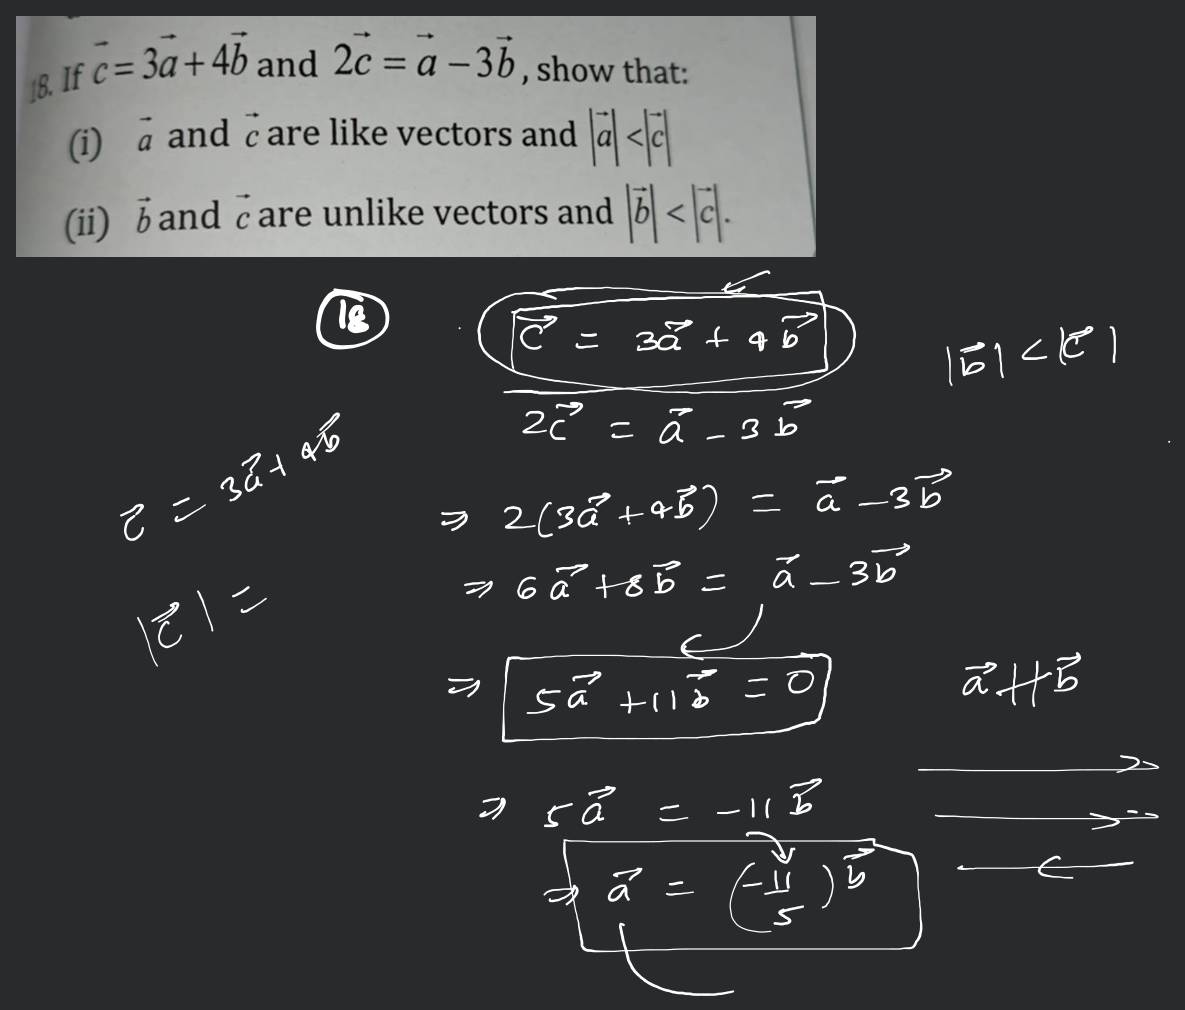 18. If c⃗ = 3a⃗ + 4b⃗ and 2c⃗ = a⃗ − 3b⃗, show that:
(i) a⃗ and c⃗ are like vectors and |a⃗| < |c⃗|
(ii) b⃗ and c⃗ are unlike vectors and |b⃗| < |c⃗|.
18
c⃗ = 3a⃗ + 4b⃗
|b⃗| < |c⃗|
2c⃗ = a⃗ − 3b⃗
c⃗ = 3a⃗ + 4b⃗
⇒ 2(3a⃗ + 4b⃗) = a⃗ − 3b⃗
⇒ 6a⃗ + 8b⃗ = a⃗ − 3b⃗
|c⃗| =
⇒ 5a⃗ + 11b⃗ = 0
a⃗ ∦ b⃗
⇒ 5a⃗ = −11b⃗
⇒ a⃗ = (−11/5)b⃗